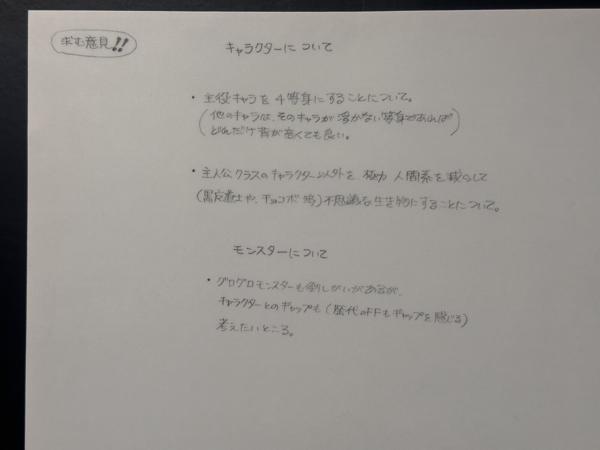 求む意見!!
キャラクターについて
・主役キャラを4等身にすることについて。
(他のキャラは、そのキャラが浮かない等身であれば
どんだけ背が高くても良い。)
・主人公クラスのキャラクター以外を、極力 人間系を減らして
(黒魔道士や、チョコボ等)不思議な生き物にすることについて。
モンスターについて
・グログロモンスターも倒しがいがあるが、
キャラクターとのギャップも(歴代のFFもギャップを感じる)
考えたいところ。